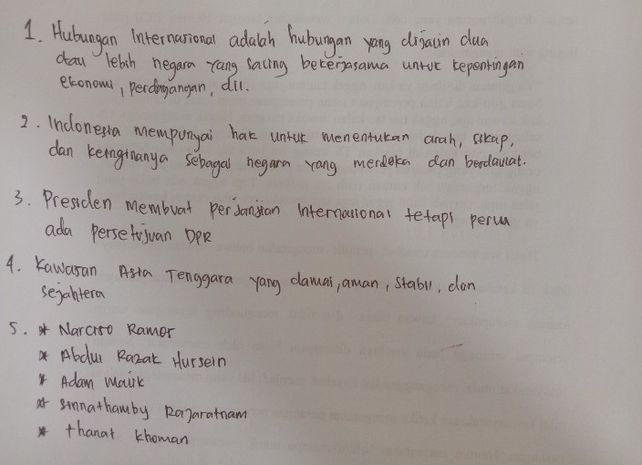 1. Hubungan Internasional adalah hubungan yang dijalin dua
atau lebih negara yang saling bekerjasama untuk kepentingan
ekonomi, perdagangan, dll.
2. Indonesia mempunyai hak untuk menentukan arah, sikap,
dan keinginanya sebagai negara yang merdeka dan berdaulat.
3. Presiden membuat perjanjian Internasional tetapi perlu
ada persetujuan DPR
4. Kawasan Asia Tenggara yang damai, aman, stabil, dan
sejahtera
5. * Narciso Ramos
* Abdul Razak Hussein
* Adam Malik
* Sinnathamby Rajaratnam
* Thanat Khoman